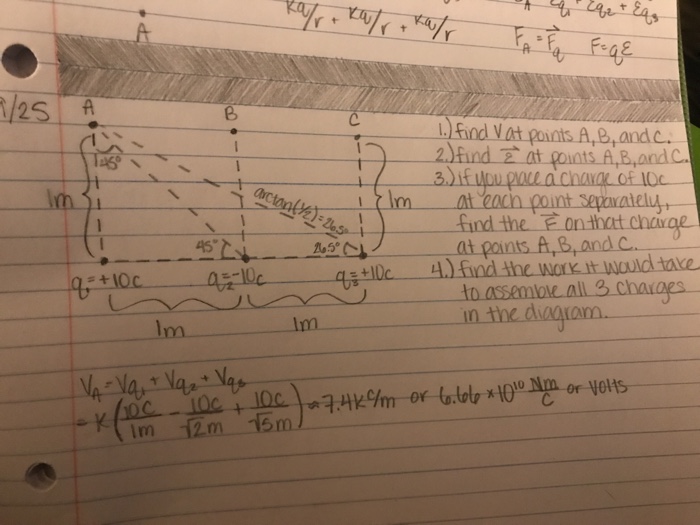 Kq/r + Kq/r + Kq/r
Eq₁ + Eq₂ + Eq₃
A
F_A = F⃗_q F=qE
/25
A B C
45°
1m
arctan(1/2)=26.5°
1m
45°
26.5°
q₁=+10C q₂=-10C q₃=+10C
1m 1m
1.) find V at points A, B, and C.
2.) find E⃗ at points A, B, and C.
3.) if you place a charge of 10C
at each point separately,
find the F⃗ on that charge
at points A, B, and C.
4.) find the work it would take
to assemble all 3 charges
in the diagram.
V_A = Vq₁ + Vq₂ + Vq₃
= K(10C/1m - 10C/√2m + 10C/√5m) ≈ 7.4K C/m or 6.66 ×10¹⁰ Nm/C or Volts